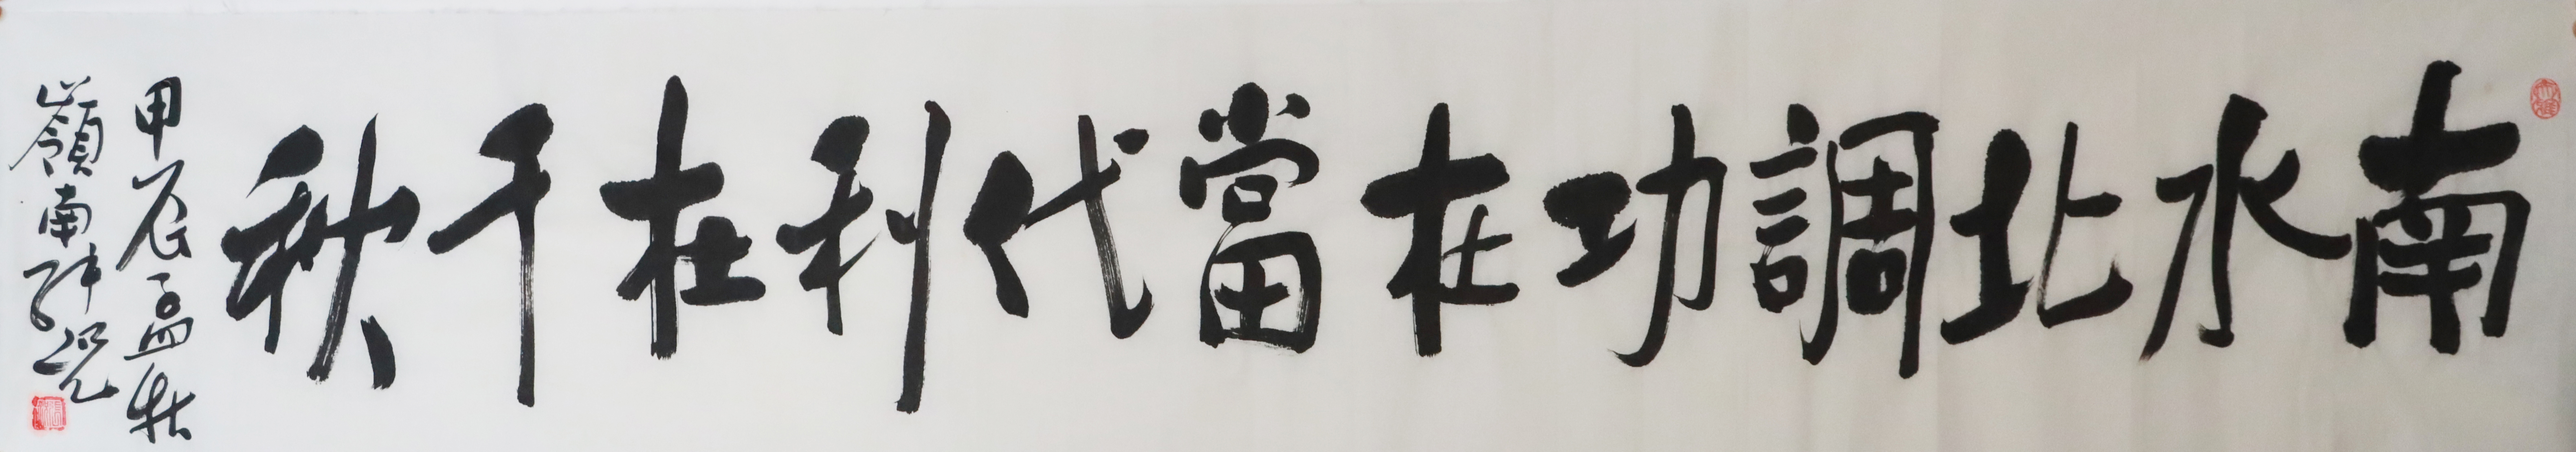 南水北調功在當代利在千秋
甲辰孟秋
嶺南